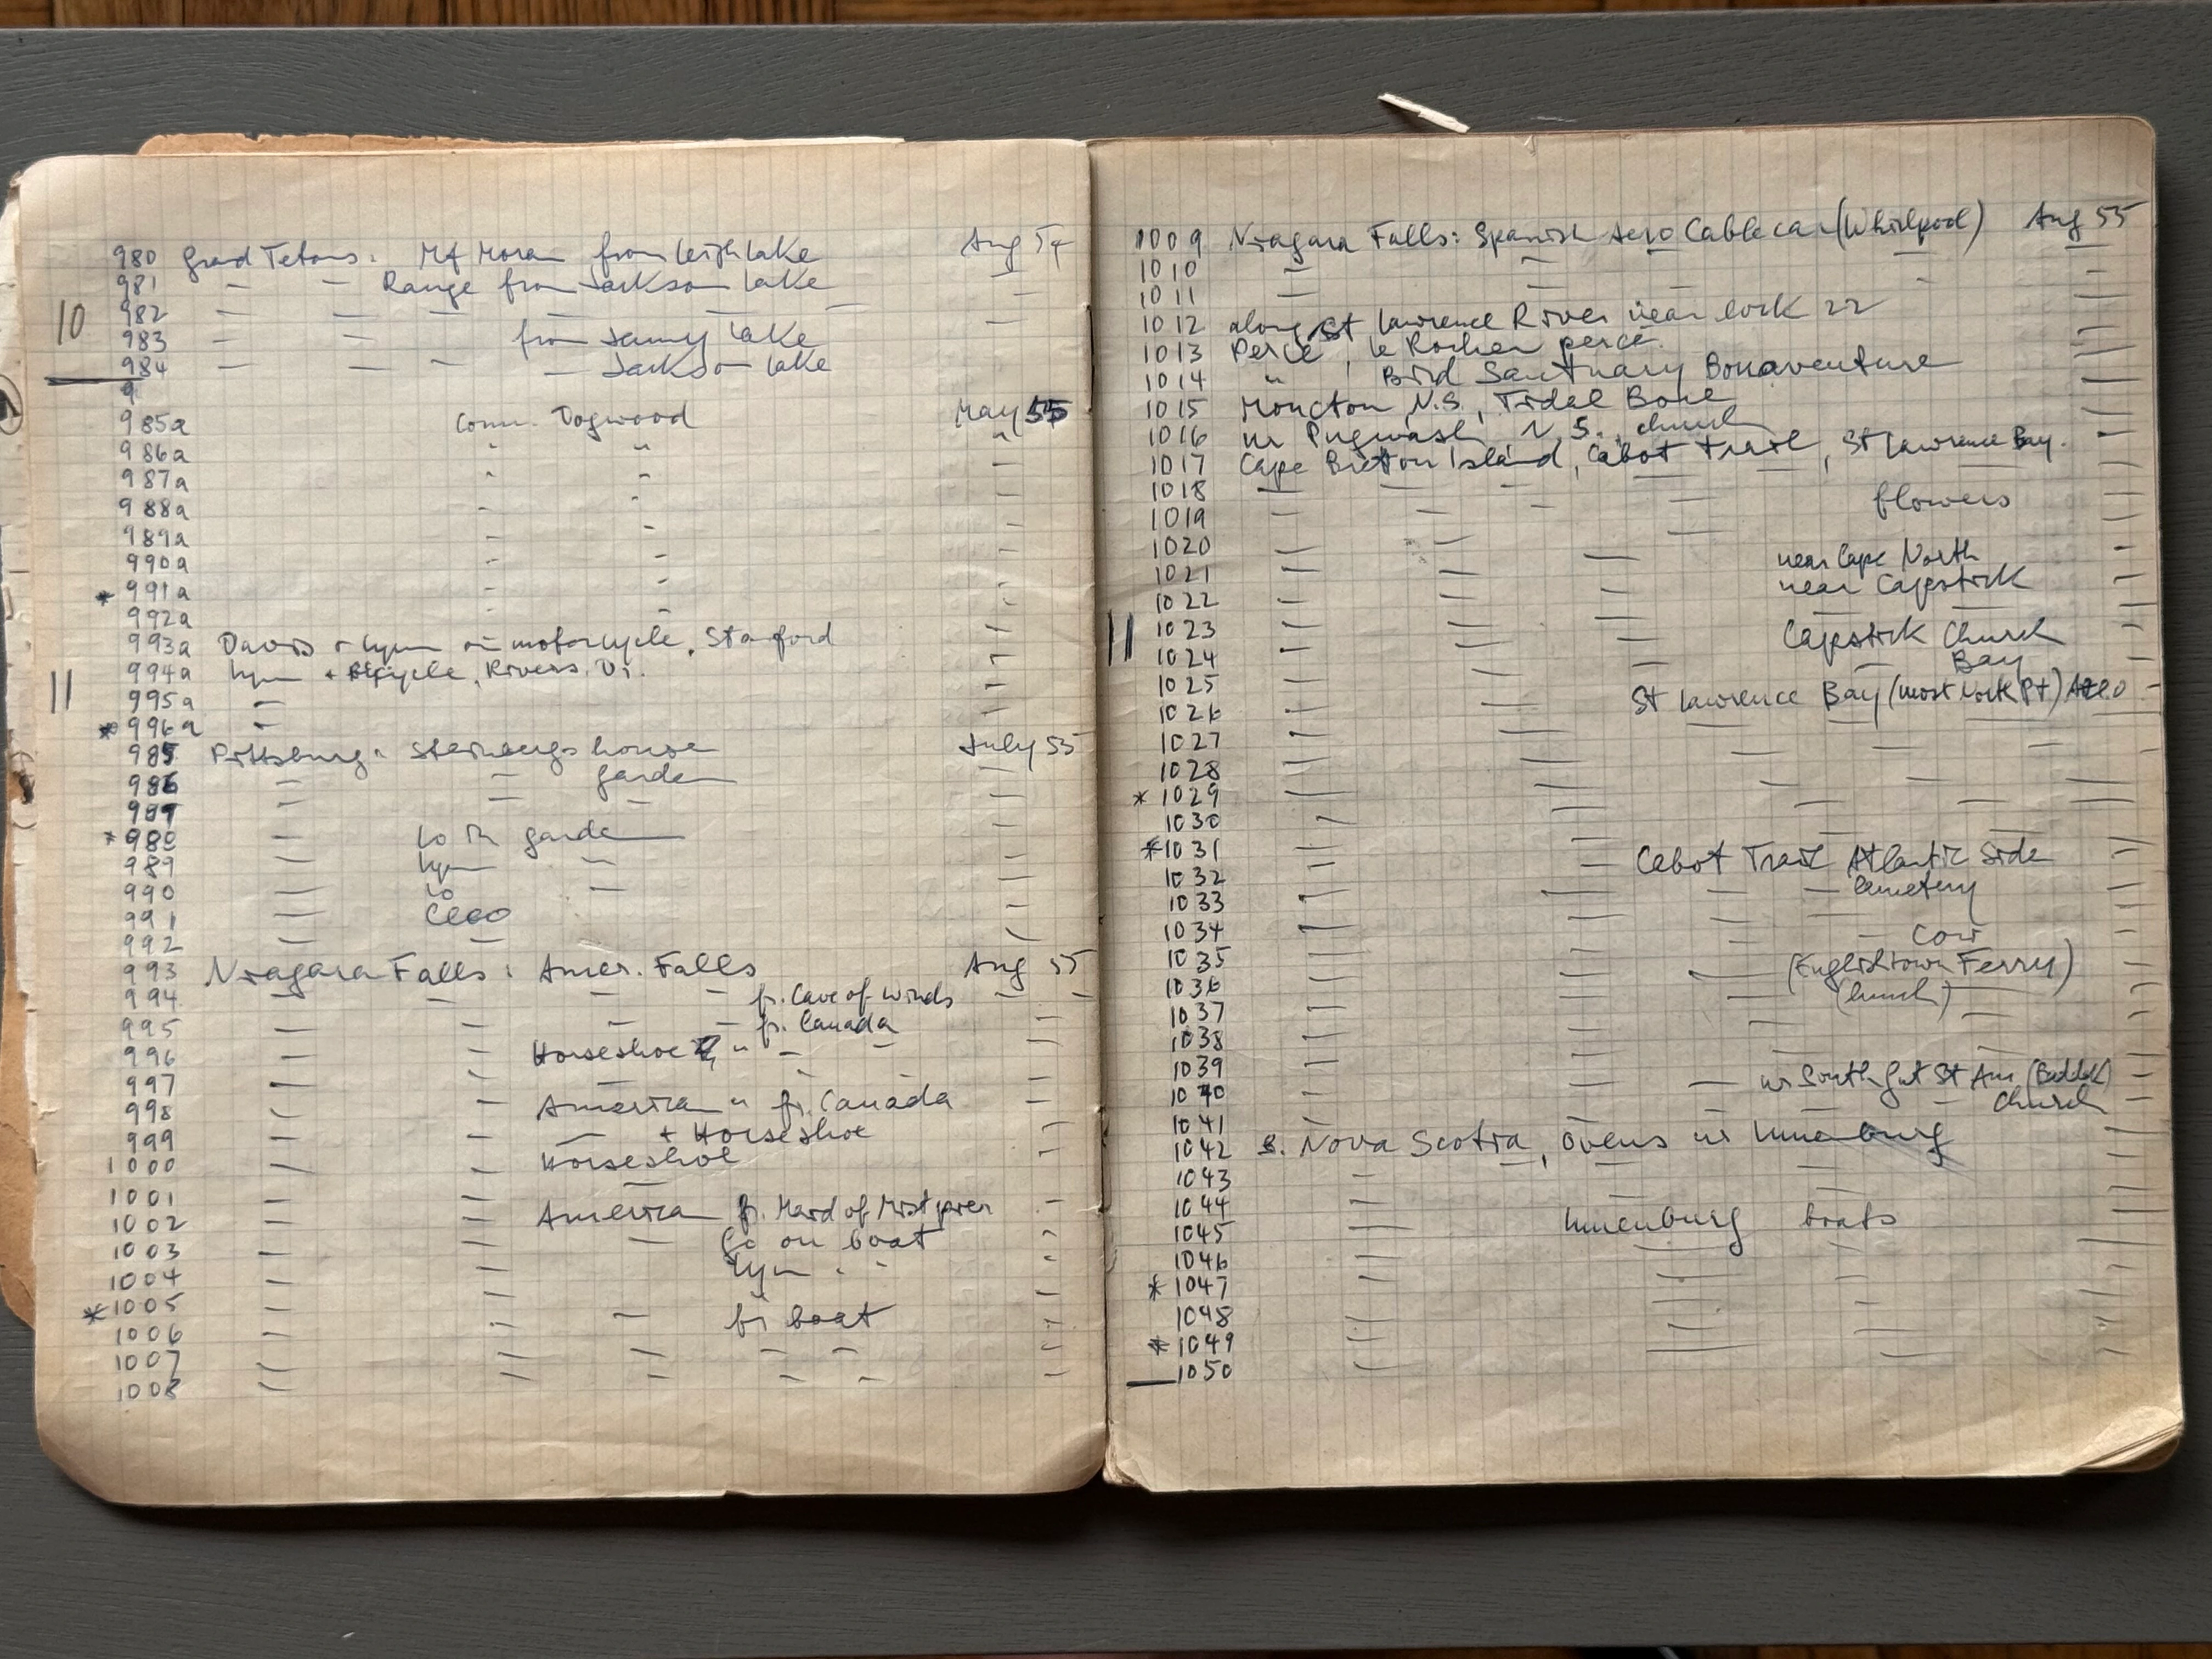 980 Grad Tetons. Mt Moran from Leigh Lake Aug 54
981 — — Range from Jackson Lake —
10
982 — — — — — —
983 — — from Jenny Lake —
984 — — — — Jackson Lake
9
985a Conn. Dogwood May 55
986a " " "
987a " " —
988a - " —
989a - —
990a - - —
* 991a - - —
992a - - —
993a Davis + Lynn on motorcycle, Stanford —
994a Lynn + Bicycle, Rivers. Di. —
11
995a — —
* 996a — —
985 Pittsburg: Steinbergs house July 55
986 — — garden —
987 — — — —
* 988 — Lo in garden —
989 — Lynn — —
990 — Lo — —
991 — Cleo —
992 — — —
993 Niagara Falls: Amer. Falls Aug 55
994 — — — — fr. Cave of Winds — —
995 — — — — fr. Canada —
996 — — Horseshoe " — — —
997 — — — - - —
998 — — American " fr. Canada —
999 — — — + Horseshoe —
1000 — — Horseshoe —
1001 — — — —
1002 — — American fr. Maid of Mist pier -
1003 — — — on boat -
1004 — — Lynn " " -
* 1005 — — —
1006 — — — fr boat —
1007 — — — — — —
1008 — — — — — —
1009 Niagara Falls: Spanish Aero Cable car (Whirlpool) Aug 55
1010 — — — —
1011 — — - —
1012 along St Lawrence River near lock 22 —
1013 Percé, le Rocher percé. —
1014 " , Bird Sanctuary Bonaventure —
1015 Moncton N.S., Tidal Bore —
1016 nr Pugwash, N.S., church —
1017 Cape Breton Island, Cabot Trail, St Lawrence Bay. —
1018 — — — — — —
1019 — — — flowers —
1020 — — — —
1021 — — — near Cape North -
1022 — — near Capstick —
11
1023 — — — — —
1024 — — Capstick Church —
1025 — — — — Bay —
1026 — St Lawrence Bay (most North Pt) —
1027 — — — —
1028 — — — — —
* 1029 — — — — —
1030 — — — — —
* 1031 — — — — —
1032 — — Cabot Trail Atlantic Side —
1033 — — — — Cemetery —
1034 — — — —
1035 — — — Cow —
1036 — — — (Englishtown Ferry) —
1037 — — — (church) —
1038 — — — — —
1039 — — — —
1040 — — — nr South Gut St Ann (Baddek) —
1041 — — — — Church —
1042 S. Nova Scotia, Ovens nr Lunenburg —
1043 — — — — —
1044 — — — —
1045 — Lunenburg boats —
1046 — — — —
* 1047 — — — —
1048 — — — —
* 1049 — — — —
1050 — — — —